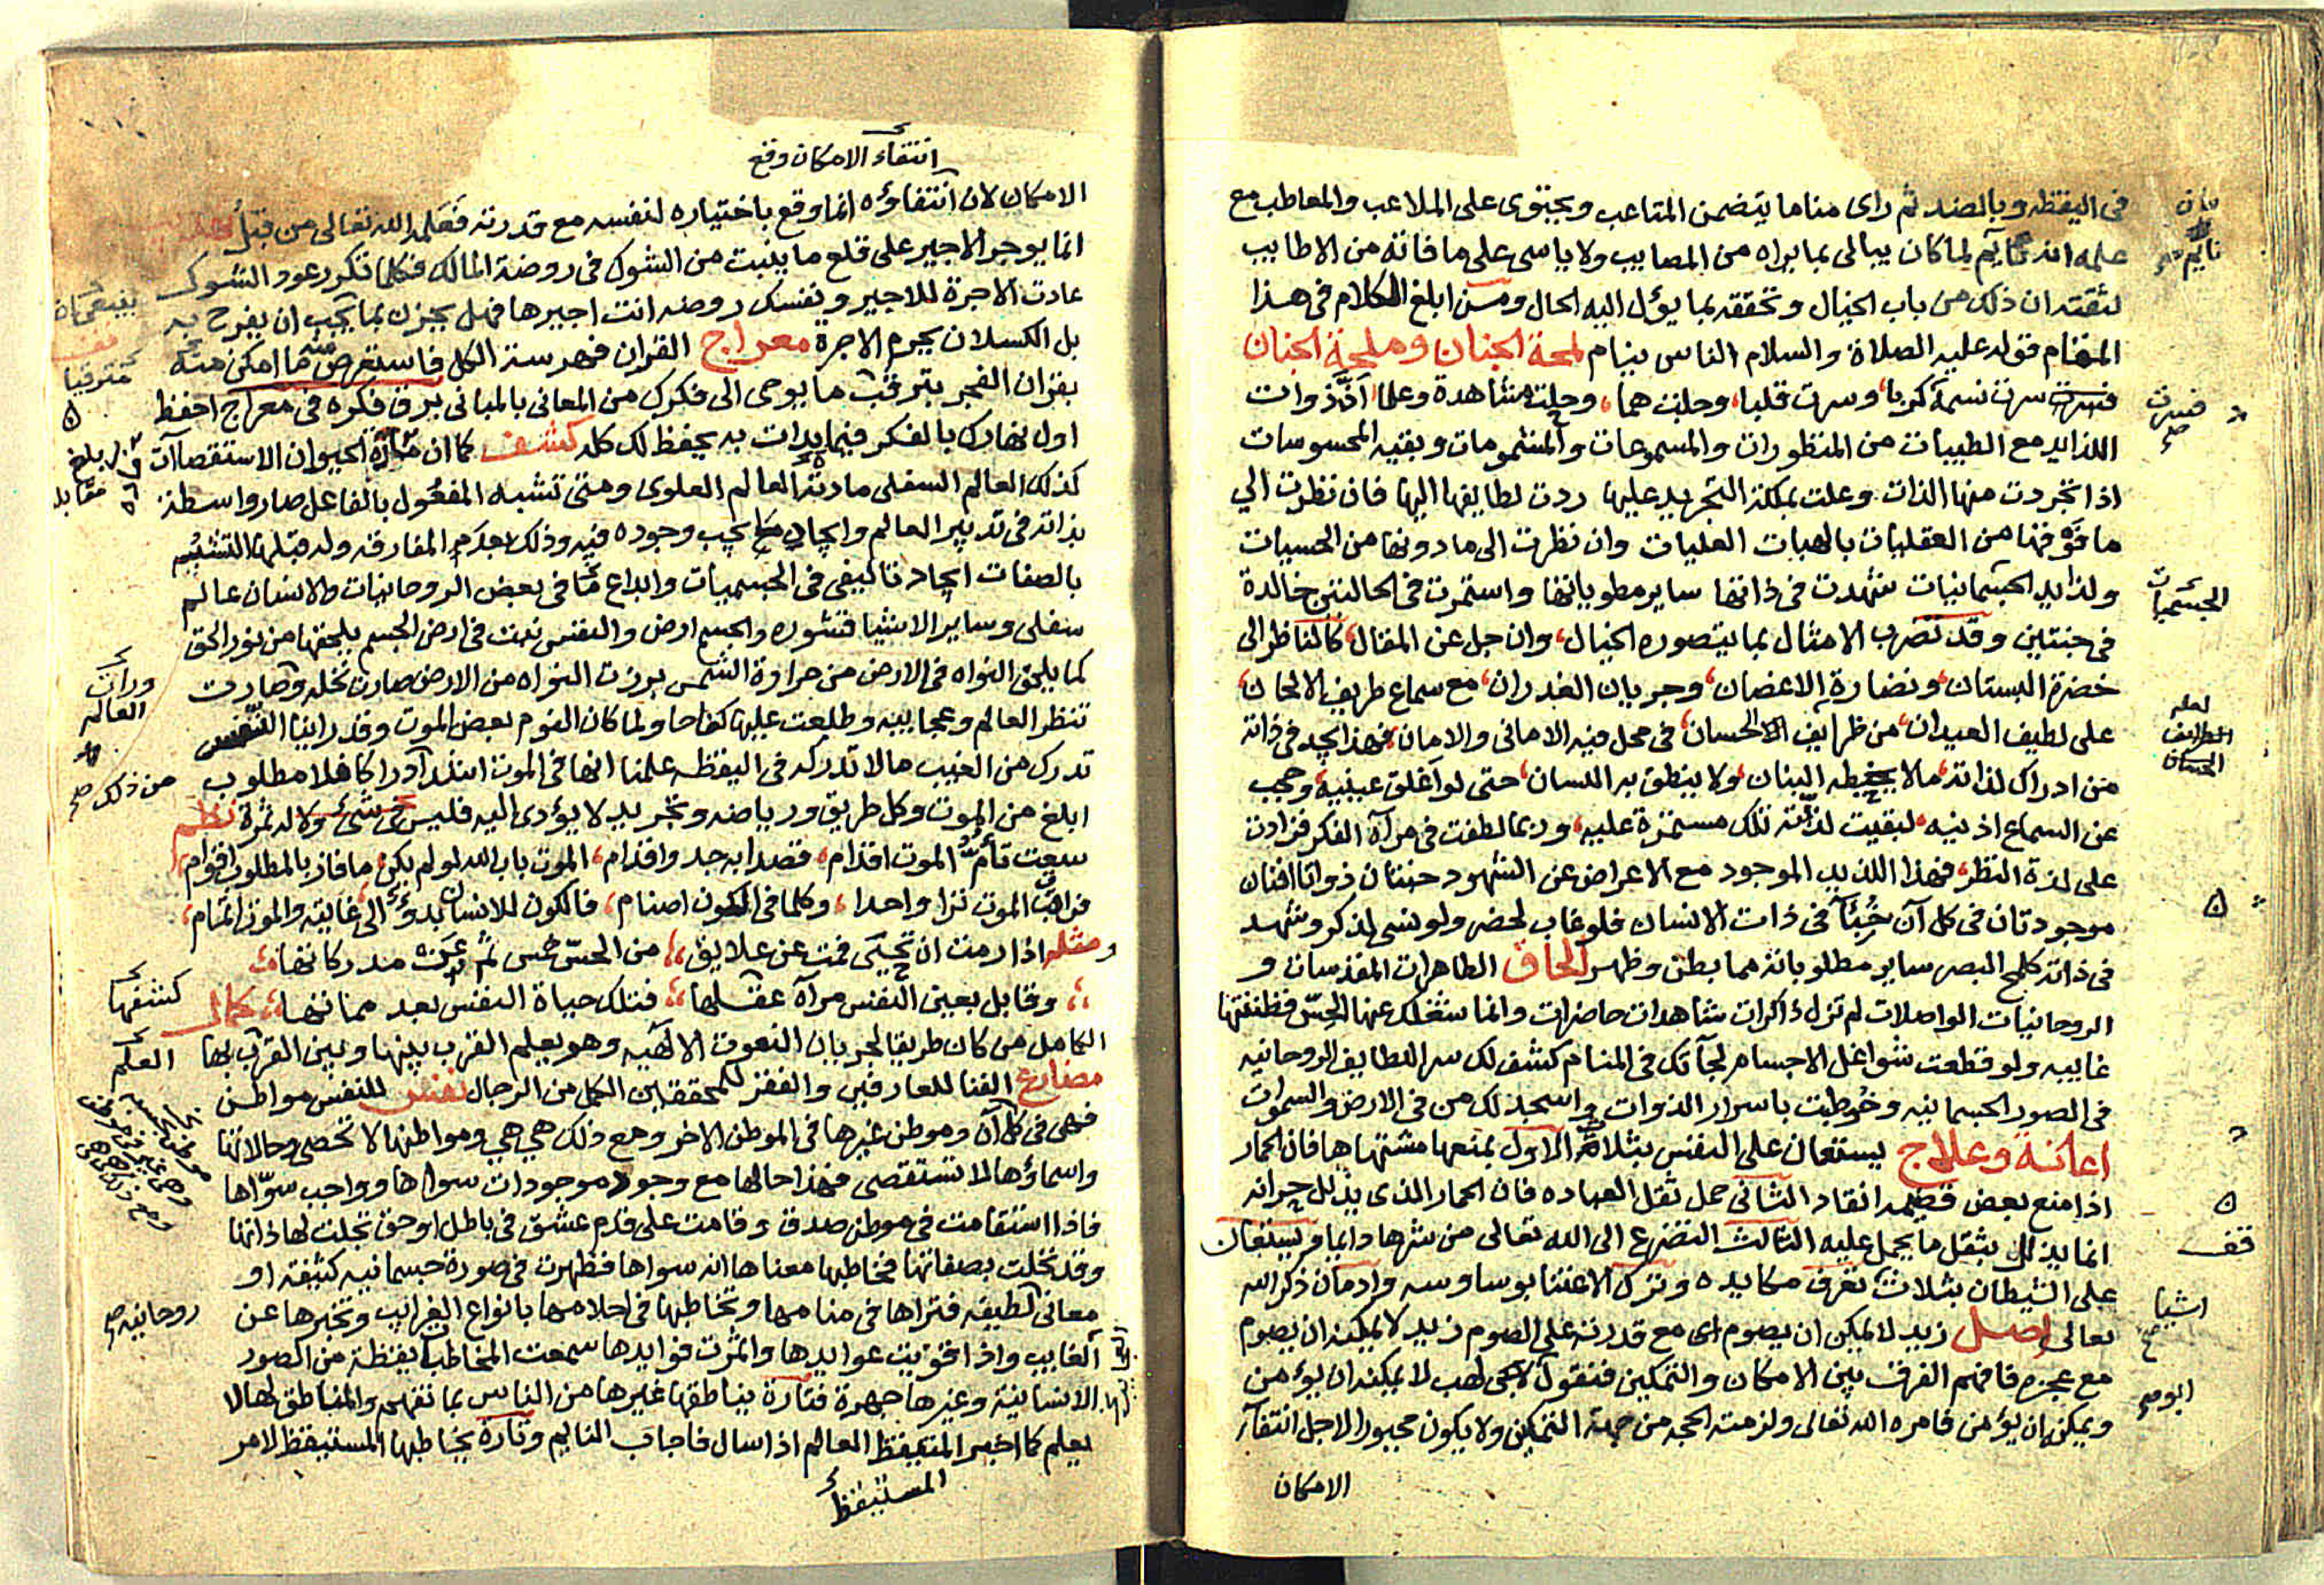 فى اليقظه وبالضد ثم راى مناما يتضمن المتاعب ويحتوى على الملاعب والمعاطب مع
علمه انه نايم لما كان يبالى بما يراه من المصايب ولا ياسى على ما فاته من الاطايب
لثقته ان ذلك من باب الخيال وتحققه بما يؤل اليه الحال ومن ابلغ الكلام فى هذا
المقام قوله عليه الصلاة والسلام الناس نيام لمحة الجنان وملحة الجنان
سرت نسمة كربا، وسرت قلبا، وجلت هما، وجلت مشاهدة وعلما ذوات
اللذايذ مع الطيبات من المنظورات والمسموعات والمشمومات وبقيه المحسوسات
اذا تجردت منها الذات وعلت بملكة التجريد عليها ردت لطايفها اليها فان نظرت الي
ما فوقها من العقليات بالهبات العليات وان نظرت الى ما دونها من الحسيات
ولذايذ الجسمانيات شهدت فى ذاتها ساير مطوياتها واستمرت فى الحالتين خالدة
فى جنتين وقد تضرب الامثال بما يتصوره الخيال، وان جل عن المقال، كالناظر الى
خضرة البستان، ونضارة الاغصان، وجريان الغدران، مع سماع طريف الالحان،
على لطيف العيدان، من ظرايف الحسان، فى محل فيه الامانى والامان، فهذا يجد فى ذاته
من ادراك لذاته، ما لا يخطه البنان، ولا ينطق به اللسان، حتى لو اغلق عينيه، وحجب
عن السماع اذنيه، لبقيت لذاته تلك مستمرة عليه، وربما لطفت فى مرآة الفكر فزادت
على لذة النظر، فهذا اللذيذ الموجود مع الاعراض عن الشهود جنتان ذواتا افنان
موجودتان فى كل آن فى ذات الانسان فلو غاب لحضر ولو نسى لذكر وشهد
فى ذاته كلمح البصر ساير مطلوباته مما بطن وظهر الحاق الطاهرات المقدسات و
الروحانيات الواصلات لم تزل ذاكرات شاهدات حاضرات وانما شغلك عنها الحسّ فظننتها
غايبه ولو قطعت شواغل الاجسام لجآتك فى المنام كشف لك سر اللطايف الروحانيه
فى الصور الجسمانيه وخوطبت باسرار الذوات واسجد لك من فى الارض والسموات
اعانة وعلاج يستعان على النفس بثلاثة الاول بمنعها مشتهاها فان الحمار
اذا منع بعض قضيمه انقاد الثانى حمل ثقل العباده فان الحمار الذى يذلل حرانه
انما يذلل بثقل ما يحمل عليه الثالث التضرع الى الله تعالى من شرها دايما ويستعان
على الشيطان بثلاث تعرف مكايده وترك الاعتنا بوساوسه وادمان ذكر الله
تعالى اصل زيد لا يمكن ان يصوم اى مع قدرته على الصوم زيد لا يمكنه ان يصوم
مع عجزه فافهم الفرق بين الامكان والتمكين فنقول لهب لا يمكنه ان يؤمن
ويمكن ان يؤمن فامره الله تعالى ولزمته الحجه من جهة التمكين ولا يكون مجبورا لاجل انتفآء
الامكان
بان
نايم
فسرت
صح
الجسميات
لعله
الظرايف
الحسان
قف
اشيا
ابو صح
انتفاء الامكان وقع
الامكان لان انتفاؤه انما وقع باختياره لنفسه مع قدرته فعلمه الله تعالى من قبل
انما يوجر الاجير على قلع ما ينبت من الشوك فى روضة المالك فكلما تكرر عود الشوك
عادت الاجرة للاجير ونفسك روضه انت اجيرها فهل يحزن بما يجب ان يفرح به
بل الكسلان يحرم الاجرة معراج القران فهرست الكل فاستعرض منه ما امكن منه
بقران الفجر بترقب ما يوحى الى فكرك من المعانى بالمبانى برق فكره فى معراج احفظ
اول نهارك بالفكر فيما بدات به يحفظ لك كله كشف كما ان مادة الحيوان الاستقصآت
كذلك العالم السفلى مادته العالم العلوى ومتى تشبه المفعول بالفاعل صار واسطة
بذاته فى تدبير العالم وايجاد ما يجب وجوده فيه وذلك بعدم المفارقه وله قبلها التشبيه
بالصفات ايجاد تاليفى فى الجسميات وابداع فى بعض الروحانيات والانسان عالم
سفلى وساير الاشيا قشوره والجسم ارض والنفس نبت فى ارض الجسم يلحقها من نور الحق
كما يلحق النواه فى الارض من حرارة الشمس برزت النواه من الارض صارت نخله وصارت
تنظر العالم وعجايبه وطلعت عليها كفاحا ولما كان النوم بعض الموت وقد راينا النفس
تدرك من الغيب ما لا تدركه فى اليقظه علمنا انها فى الموت اشد ادراكا فلا مطلوب
ابلغ من الموت وكل طريق ورياضه وتجريد لا يؤدى اليه فليس شئ ولا له ثمرة نظم
سعت تأم الموت اقدام، قصدا به جد واقدام، الموت باب الله لو لم يكن، ما فاز بالمطلوب اقوام،
فراقب الموت تر واحدا، وكلما فى الكون اصنام، فالكون للانسان بدؤ الى، غايته والموت اتمام،
ومثله اذا رمت ان تحيى فمت عن علايق،، من الحسّ خمس ثم مدركاتها،،
،، وقابل بعين النفس مرآة عقلها،، فتلك حياة النفس بعد مماتها،، كمال
الكامل من كان طريقا لجريان النعوت الالهيه وهو يعلم القرب بينها وبين القرب بها
مصارع الفنا للعارفين والفقر للمحققين الكل من الرجال نفس للنفس مواطن
فهى فى كل آن وموطن غيرها فى الموطن الاخر ومع ذلك هي هي ومواطنها لا تحصى وحالاتها
واسماؤها لا تستقصى فهذا حالها مع وجود موجودات سواها وواجب سوّاها
فاذا استقامت فى موطن صدق وقامت على قدم عشق فى باطل او حق تجلت لها ذاتها
وقد تحلت بصفاتها فخاطبها معناها انه سواها فظهرت فى صورة جسمانيه كثيفه او
معانى لطيفه فتراها فى منامها وتخاطبها فى احلامها بانواع الغرائب وتخبرها عن
الغايب واذا قويت عوايدها واثمرت فوايدها سمعت المخاطب يقظة من الصور
الانسانية وغيرها جهرة فتارة يناطقها غيرها من الناس بما تفهمه والمناطق لها لا
يعلم كما اخبر المتيقظ العالم اذا سال فاجاب النايم وتارة يخاطبها المستيقظ لامر
المستيقظ
قف
مترقبا
بلغ
مقابله
ورات
العالم
من ذلك صح
كشفها
العلم
روحانيه صح